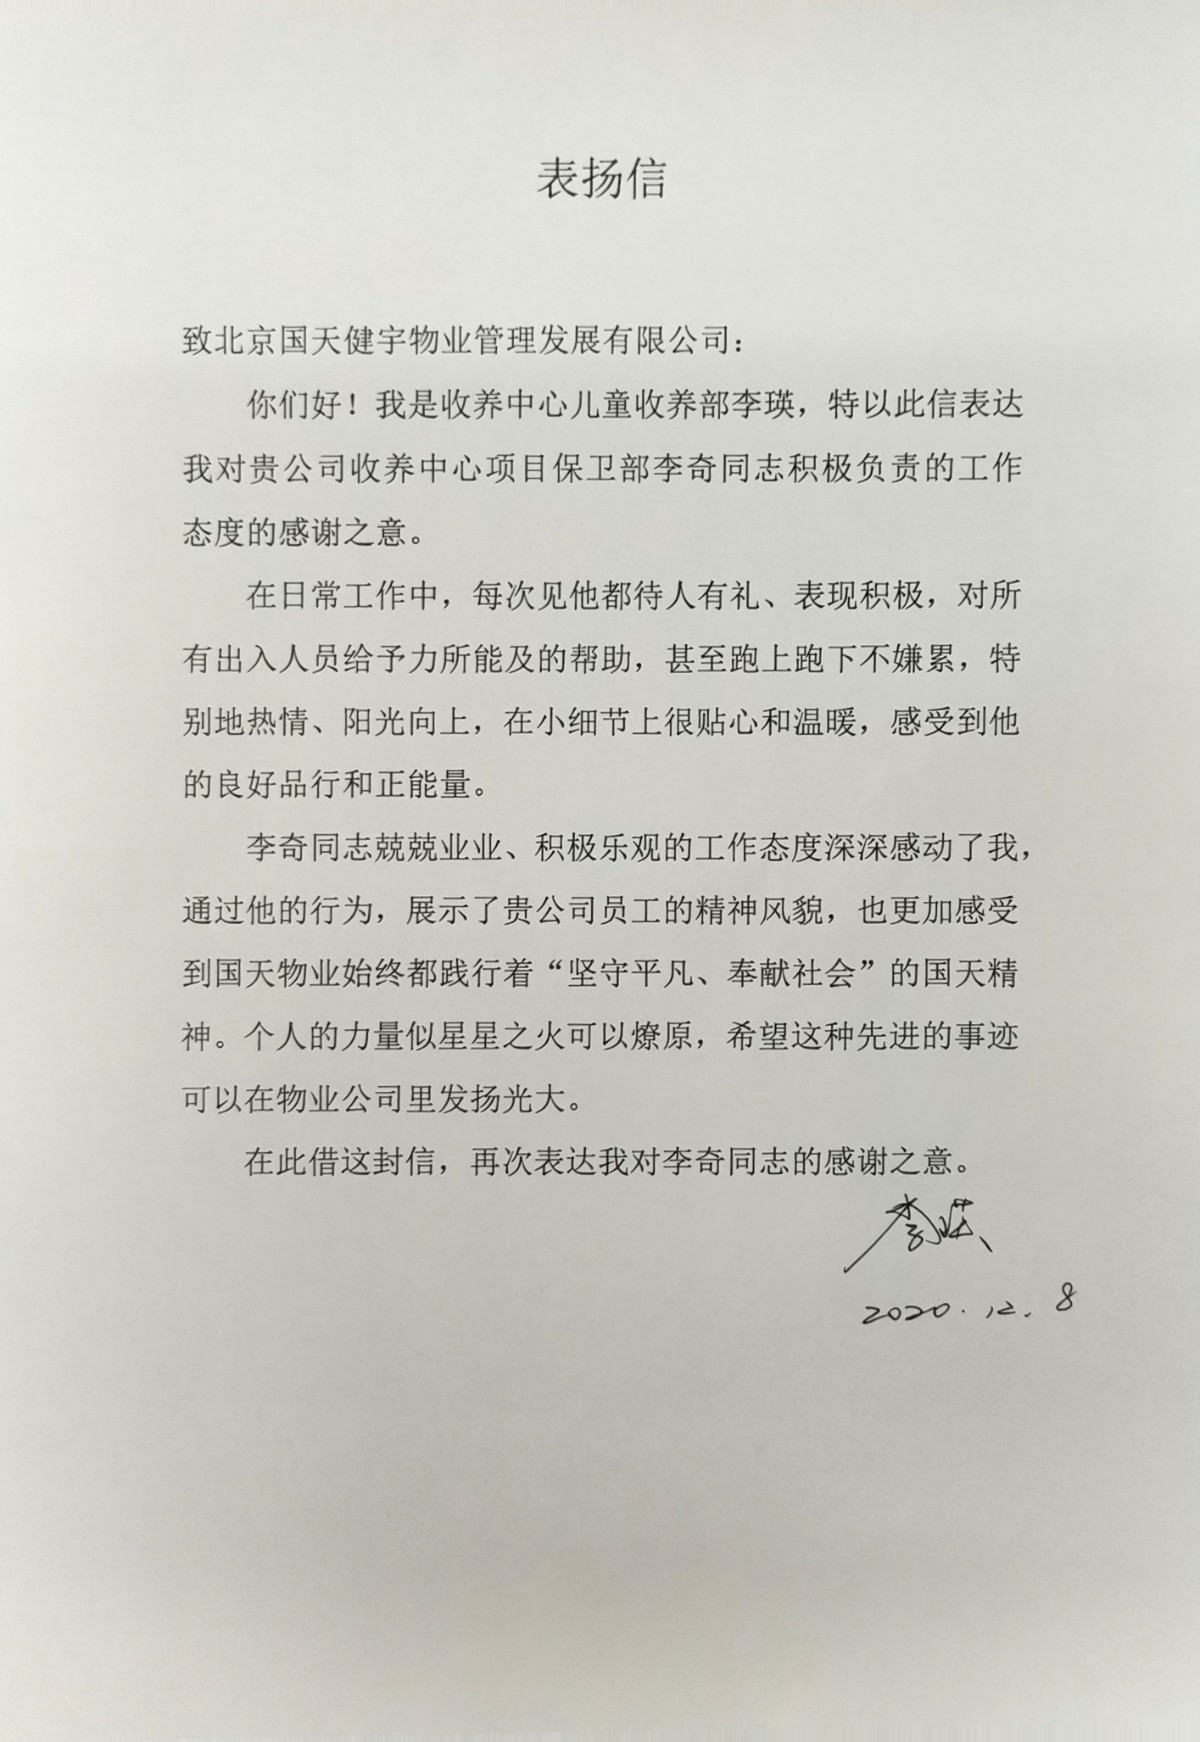 表扬信
致北京国天健宇物业管理发展有限公司：
你们好！我是收养中心儿童收养部李瑛，特以此信表达
我对贵公司收养中心项目保卫部李奇同志积极负责的工作
态度的感谢之意。
在日常工作中，每次见他都待人有礼、表现积极，对所
有出入人员给予力所能及的帮助，甚至跑上跑下不嫌累，特
别地热情、阳光向上，在小细节上很贴心和温暖，感受到他
的良好品行和正能量。
李奇同志兢兢业业、积极乐观的工作态度深深感动了我，
通过他的行为，展示了贵公司员工的精神风貌，也更加感受
到国天物业始终都践行着“坚守平凡、奉献社会”的国天精
神。个人的力量似星星之火可以燎原，希望这种先进的事迹
可以在物业公司里发扬光大。
在此借这封信，再次表达我对李奇同志的感谢之意。
李瑛
2020.12.8